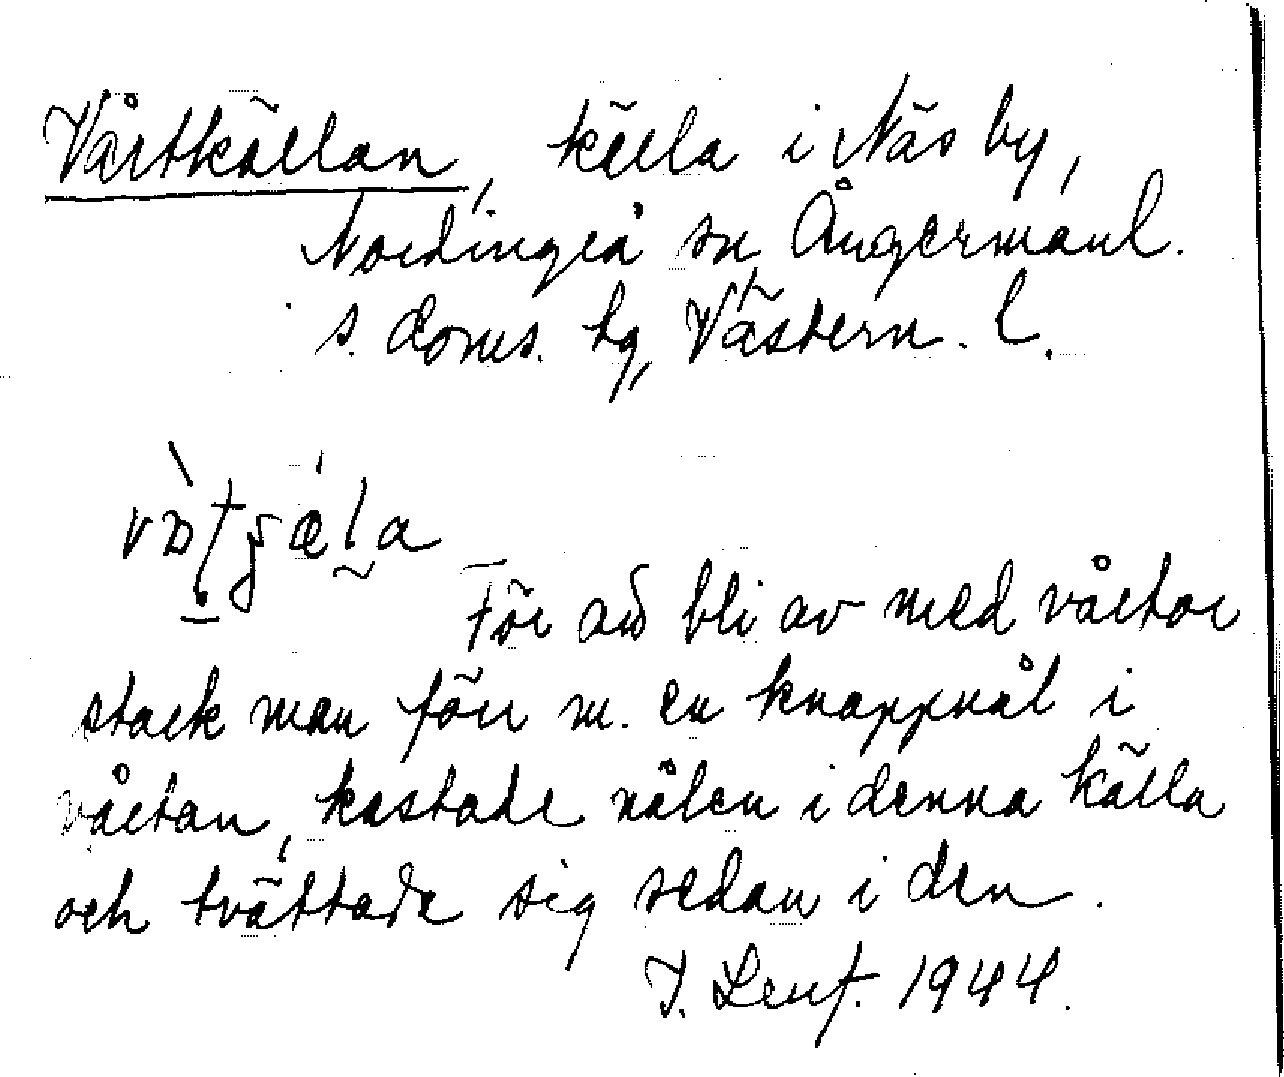 Vårtkällan, källa i Näs by,
Nordingrå sn Ångermanl.
s. doms. hg, Västern. l.
För att bli av med vårtor
stack man förr m. en knappnål i
vårtan, kastade nålen i denna källa
och tvättade sig sedan i den.
1944.